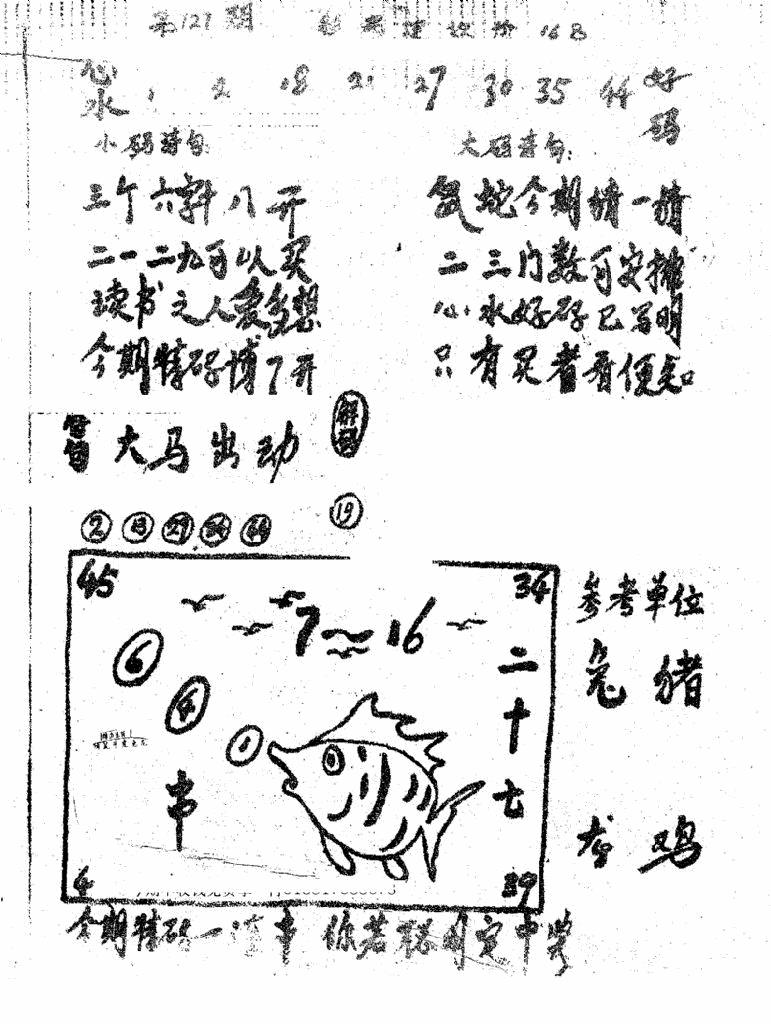 第127期
16日
心水 1 2 18 21 27 30 35 44 好码
小码诗句:
三个六字八开
二一二九可以买
读书之人爱多想
今期特码博7开
大码诗句:
鼠蛇今期猜一猜
二三门数可安排
心水好码已写明
只有买者看便知
大马出动
解码
2 13 27
19
45 34
7~16
6
4
1
二十七
串
4 39
参考单位
兔 猪
龙 鸡
今期特码一 串 你若 定中奖